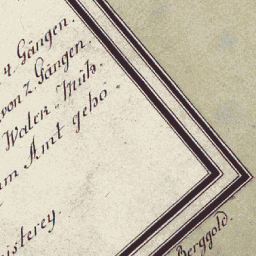 4. Gängen.
von 2. Gängen.
Walck Müh-
um Amt geho-
isterey.
Berggold.